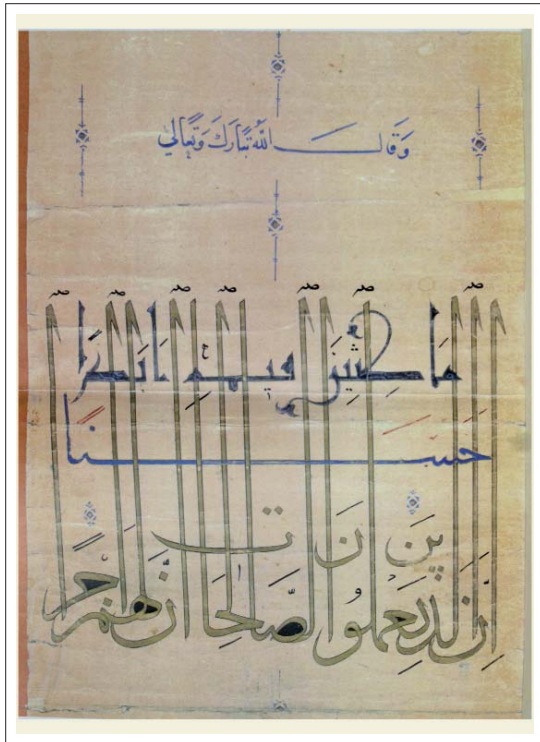 وَقَالَ اللهُ تَبَارَكَ وَتَعَالي
مَاكِثِينَ فِيهِ أَبَدًا
حَسَنًا
ينَ نَ ت
الذِينَ يَعْمَلُو الصَّالِحَا أَنَّ لَهُمْ أَجْرًا